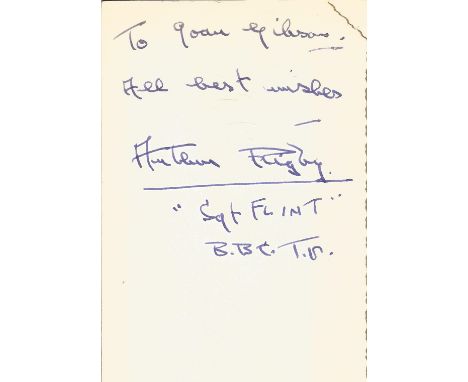 To Joan Gibson.
All best wishes —
Arthur Rigby.
"Sgt FLINT"
B.B.C. T.V.